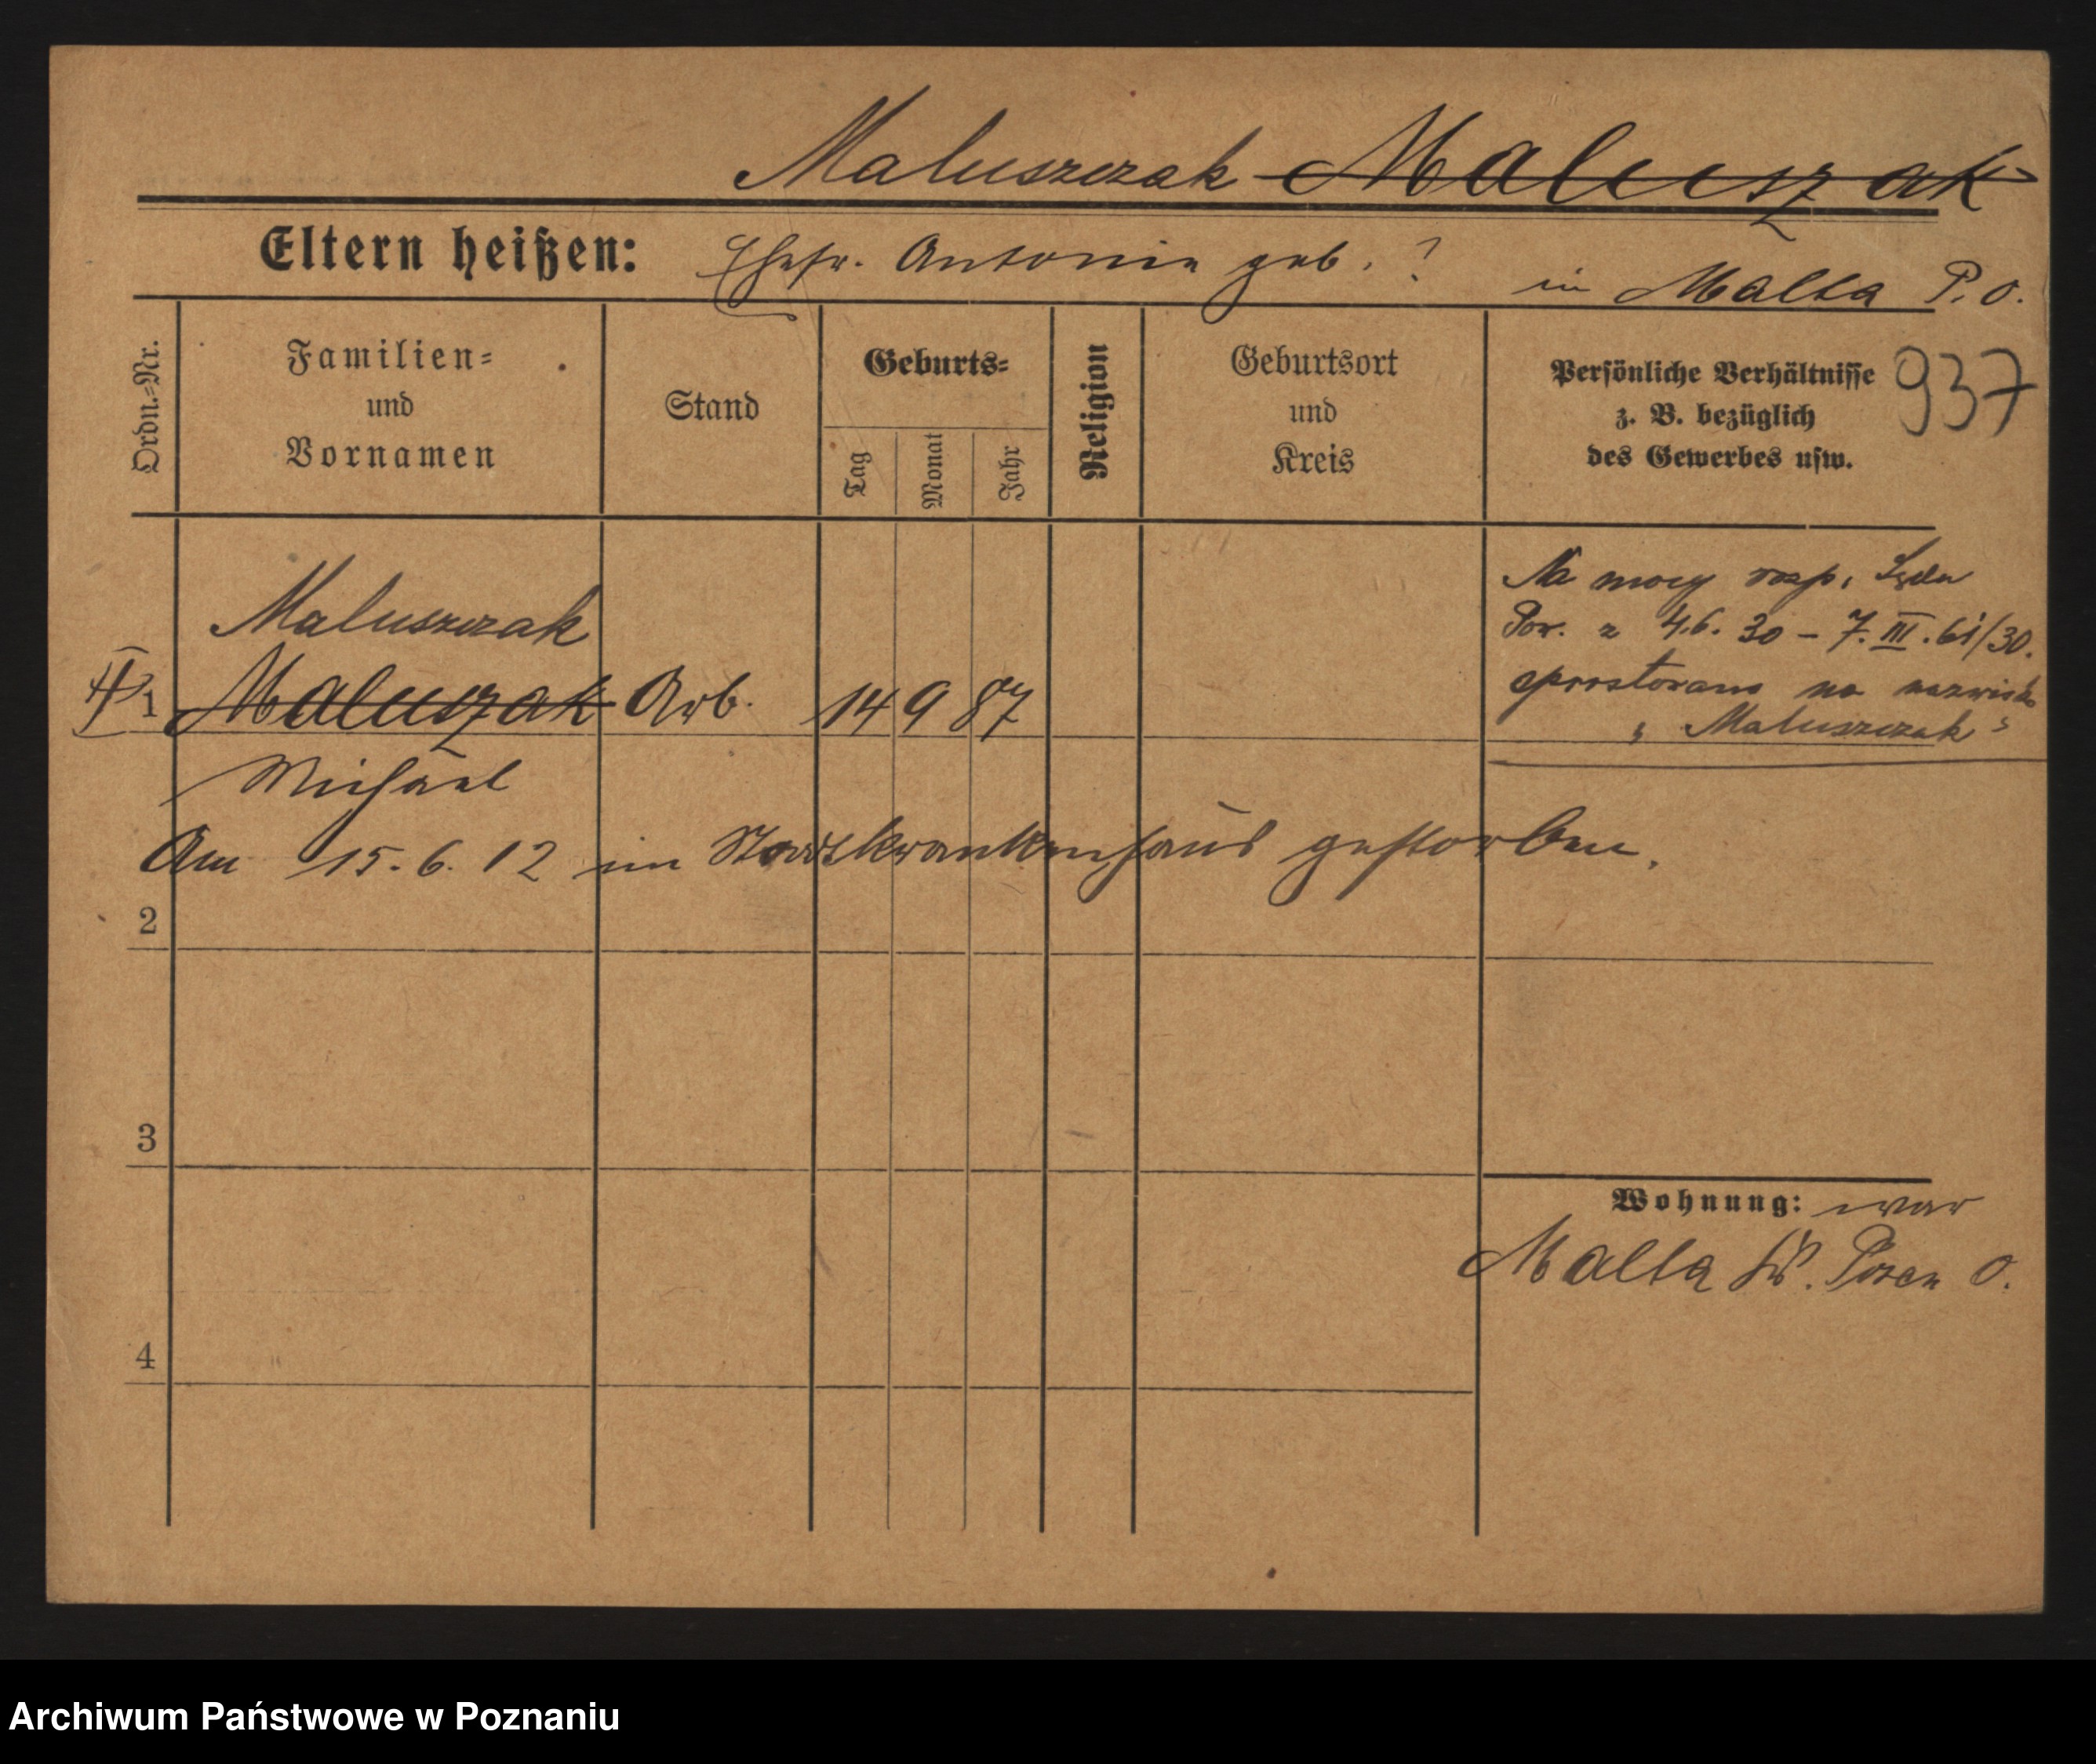 Maluszczak Maluszak
Eltern heißen: Ehefr. Antonie geb. ? in Malta P. O.
Ordn.=Nr.
Familien=
und
Vornamen
Stand
Geburts=
Tag
Monat
Jahr
Religion
Geburtsort
und
Kreis
Persönliche Verhältnisse
z. B. bezüglich
des Gewerbes usw.
937
Maluszczak
1 Maluszak Arb. 14 9 87
Michael
Na mocy rozp. Sądu
Pow. z 4.6.30 – 7. III. 61/30.
sprostowano na nazwisko
„Maluszczak"
Am 15. 6. 12 im Stadtkrankenhaus gestorben.
2
3
4
Wohnung: war
Malta Posen O.
Archiwum Państwowe w Poznaniu